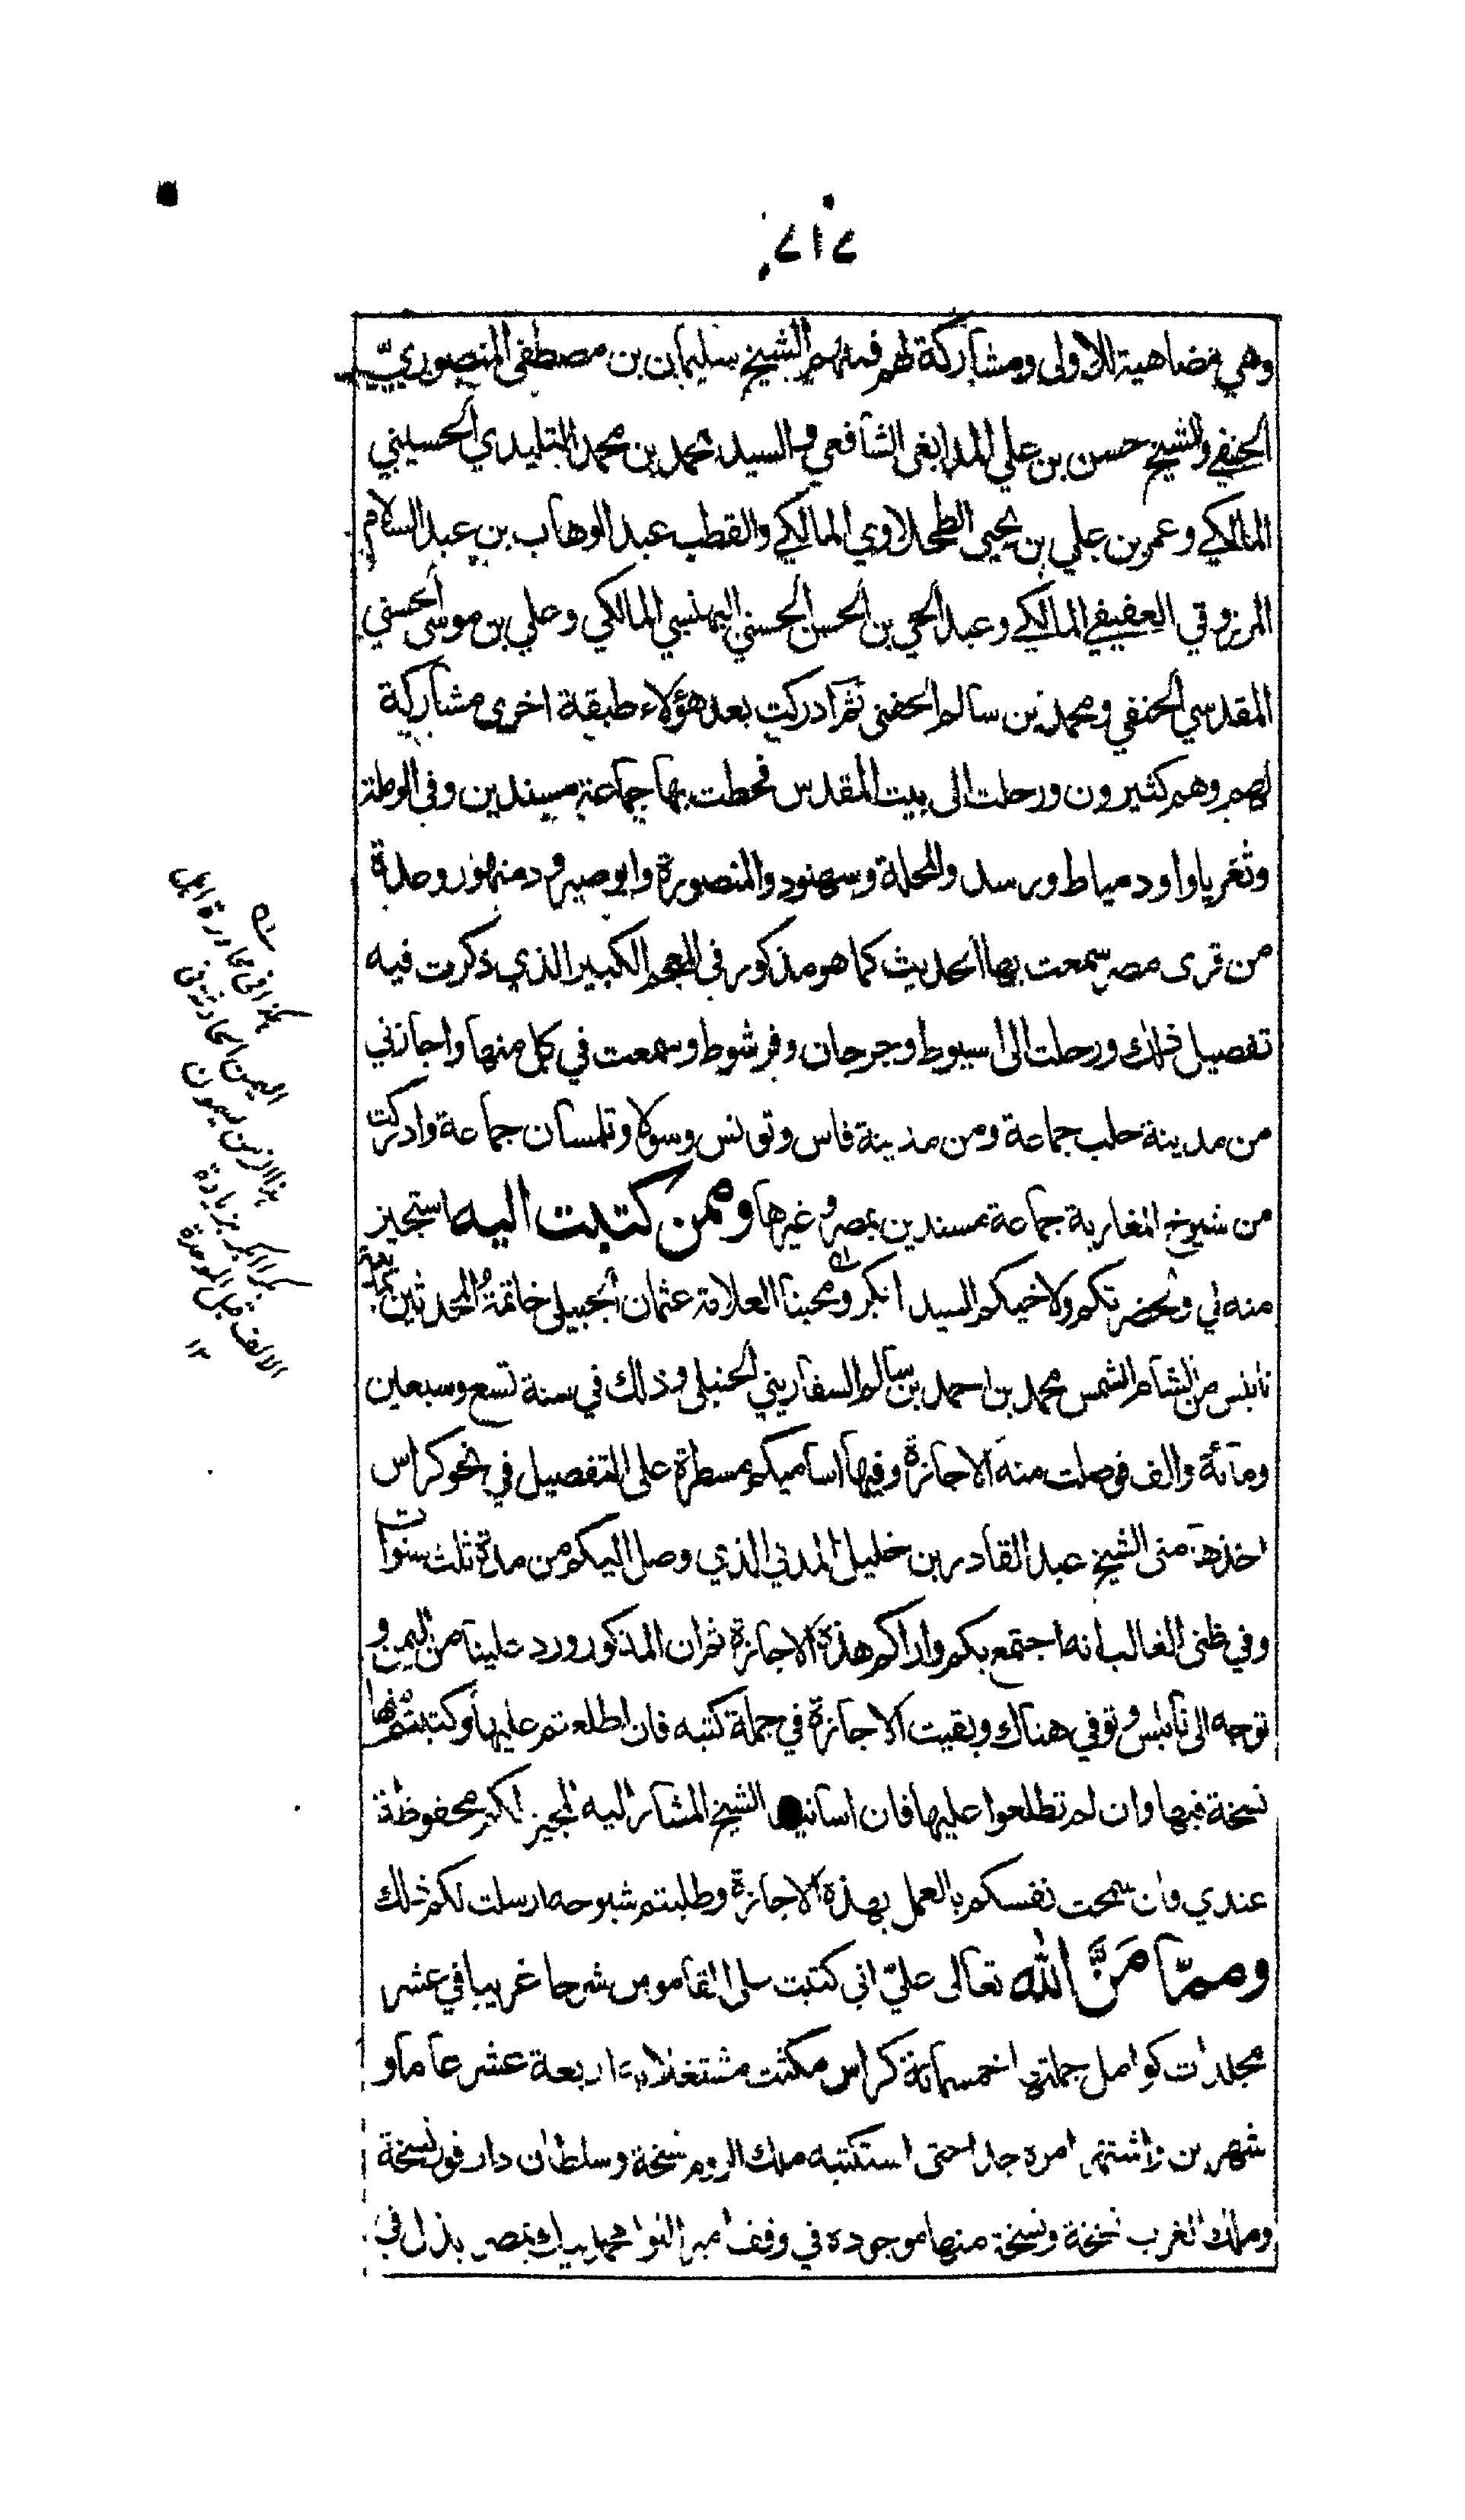 ٧١٧
وهي مضاهية للاولى ومشاركة لهم فمنهم الشيخ سليمان بن مصطفى المنصوري
الحنفي والشيخ حسن بن علي المدابغي الشافعي والسيد محمد بن محمد البليدي الحسيني
المالكي وعمر بن علي بن يحيى الطحلاوي المالكي والقطب عبد الوهاب بن عبد السلام
المرزوقي العفيفي المالكي وعبد الحي بن الحسن الحسني البهنسي المالكي وعلي بن موسى الحسني
المقدسي الحنفي ومحمد بن سالم الحفني ثم ادركت بعد هؤلاء طبقة اخرى مشاركة
لهم وهم كثيرون ورحلت الى بيت المقدس فحطت بها جماعة مسندين وفي الوطلة
وثغر يا واو دمياط ورسد والمحلة وسهنود والمنصورة وابو صير ودمنهور وعدة
من قرى مصر سمعت بها الحديث كما هو مذكور في المعجم الكبير الذي ذكرت فيه
تفصيل ذلك ورحلت الى اسيوط وجرجان وفرشوط وسمعت في كل منها واجازني
من مدينة حلب جماعة ومن مدينة فاس وتونس وسولا وتلمسان جماعة وادركت
من شيوخ المغاربة جماعة مسندين بمصر وغيرها وممن كتبت اليه استجيز
منه لي ولحضرتكم ولاخيكم السيد ابكر ومحبنا العلامة عثمان الجبيلي خاتمة المحدثين
نابلس من الشام الشمس محمد بن احمد بن سالم السفاريني الحنبلي وذلك في سنة تسع وسبعين
ومائة والف فوصلت منه الاجازة وفيها اساميكم مسطرة على التفصيل في نحو كراس
اخذها مني الشيخ عبد القادر بن خليل المدني الذي وصل اليكم من مدة ثلث سنوات
وفي ظني الغالب انه اجتمع بكم واراكم هذة الاجازة ثم ان المذكور ورد علينا من اليمن و
توجه الى نابلس وتوفي هناك وبقيت الاجازة في جملة كتبه فان اطلعتم عليها وكتبتم منها
نسخة فبها وان لم تطلعوا عليها فان اسانيد الشيخ المشار اليه المجيز لكم محفوظة
عندي وان سمحت نفسكم بالعمل بهذة الاجازة وطلبتم شيوخه ارسلت لكم ذلك
وممّا مَنَّ الله تعالى عليّ اني كتبت على القاموس شرحا غريبا في عشر
مجلدات كوامل جملتها خمسمائة كراس مكثت مشتغلا به اربعة عشر عاما و
شهرين واشتهر امره جدا حتى استكتبه ملك الروم نسخة وسلطان دار فور نسخة
وملك الغرب نسخة ونسخة منها موجوده في وقف امير اللوا محمد بيك بمصر بذل في